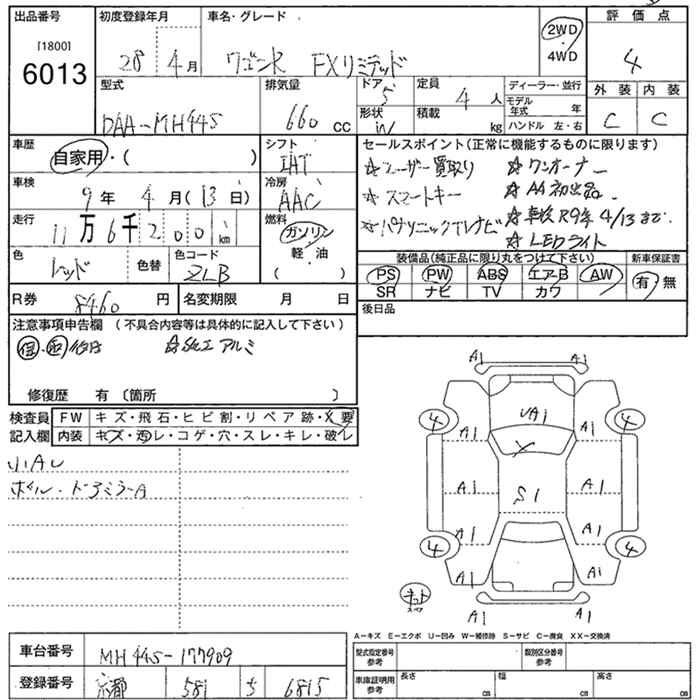 出品番号 初度登録年月 車名・グレード 評価点
[1800]
6013
28年4月 ワゴンR FXリミテッド 2WD 4WD 4
型式 排気量 ドア 定員 ディーラー・並行 外装 内装
DAA-MH44S 660cc 5 4人 モデル年式 年 C C
形状 in/ 積載 kg ハンドル 左・右
車歴 シフト セールスポイント(正常に機能するものに限ります)
自家用・( ) IAT ☆ユーザー買取り ☆ワンオーナー
車検 冷房 ☆スマートキー ☆AA初出品
9年4月(13日) AAC ☆パナソニックTVナビ ☆車検R9年4/13まで
走行 燃料 ☆LEDライト
11万6千200km ガソリン
軽・油
( )
色 色替 色コード 装備品(純正品に限り丸をつけて下さい) 新車保証書
レッド ZLB PS PW ABS エアB AW 有・無
SR ナビ TV カワ
R券 8460円 名変期限 月 日 後日品
注意事項申告欄 (不具合内容等は具体的に記入して下さい)
☆純正アルミ
修復歴 有 〔箇所 〕
検査員 FW キズ・飛石・ヒビ割・リペア跡・X要
記入欄 内装 キズ・汚レ・コゲ・穴・スレ・キレ・破レ
小AU
ホイル・ドアミラーA
A1 A1
4 UA1 4
A1 X A1
A1 S1 A1
A1 A1
4 4
A1 A1
キット
スペア
A1 A1
A－キズ E－エクボ U－凹み W－補修跡 S－サビ C－腐食 XX－交換済
車台番号 MH44S-177909 型式指定番号 参考 類別区分番号 参考
登録番号 京都 581 5 6815 車庫証明用 参考 長さ cm 幅 cm 高さ cm